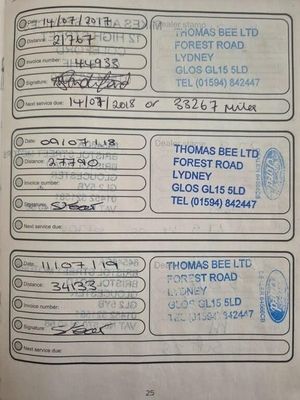 Date: 14/07/2017
Dealer stamp
Distance: 21767
Invoice number: 44933
Signature:
Next service due: 14/07/2018 or 33267 miles
THOMAS BEE LTD
FOREST ROAD
LYDNEY
GLOS GL15 5LD
TEL (01594) 842447
Date: 09/07/18
Dealer stamp
Distance: 27790
Invoice number:
Signature:
Next service due:
THOMAS BEE LTD
FOREST ROAD
LYDNEY
GLOS GL15 5LD
TEL (01594) 842447
Ford
Date: 11/07/19
Distance: 34133
Invoice number:
Signature:
Next service due:
THOMAS BEE LTD
FOREST ROAD
LYDNEY
GLOS GL15 5LD
TEL (01594) 842447
Ford
25